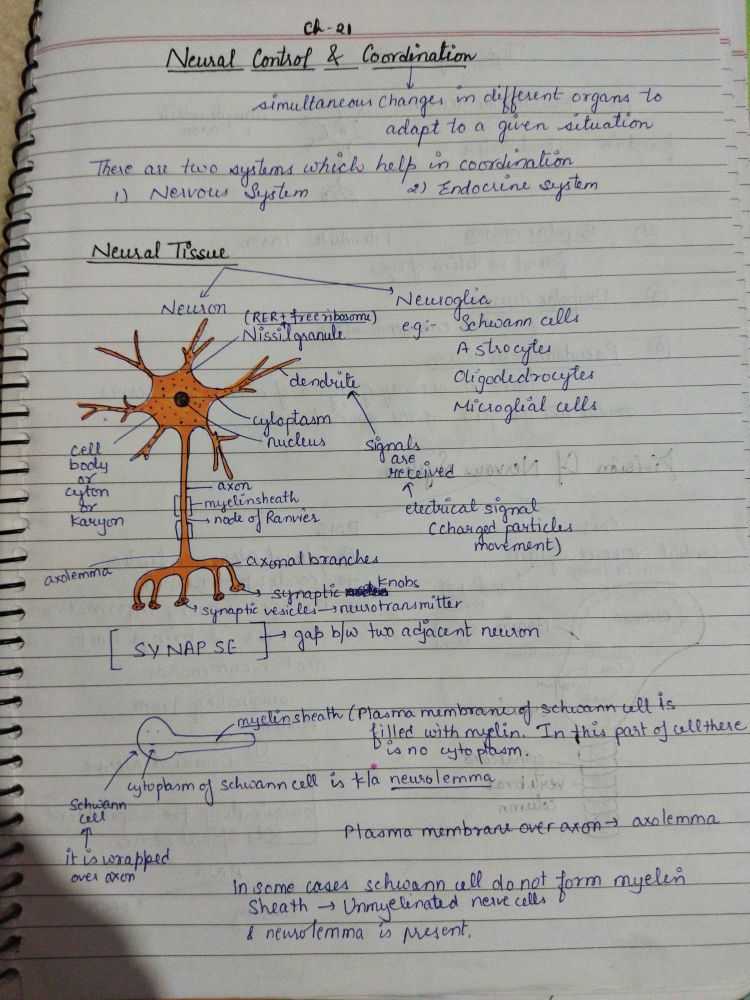 Ch-21
Neural Control & Coordination
simultaneous changes in different organs to
adapt to a given situation
There are two systems which help in coordination
1) Nervous System
2) Endocrine system
Neural Tissue
Neuron
Neuroglia
(RER + free ribosome)
Nissil granule
e.g:- Schwann cells
Astrocytes
Oligodedrocytes
Microglial cells
dendrite
cytoplasm
nucleus
signals
are
received
electrical signal
(charged particles
movement)
cell
body
or
cyton
or
Karyon
axon
myelinsheath
node of Ranvier
axolemma
axonal branches
synaptic Knobs
synaptic vesicles → neurotransmitter
[SYNAPSE] → gap b/w two adjacent neuron
myelinsheath (Plasma membrane of schwann cell is
filled with myelin. In this part of cell there
is no cytoplasm.
cytoplasm of schwann cell is k/a neurolemma
Schwann
cell
it is wrapped
over axon
Plasma membrane over axon → axolemma
In some cases schwann cell do not form myelin
Sheath → Unmyelinated nerve cells
& neurolemma is present.